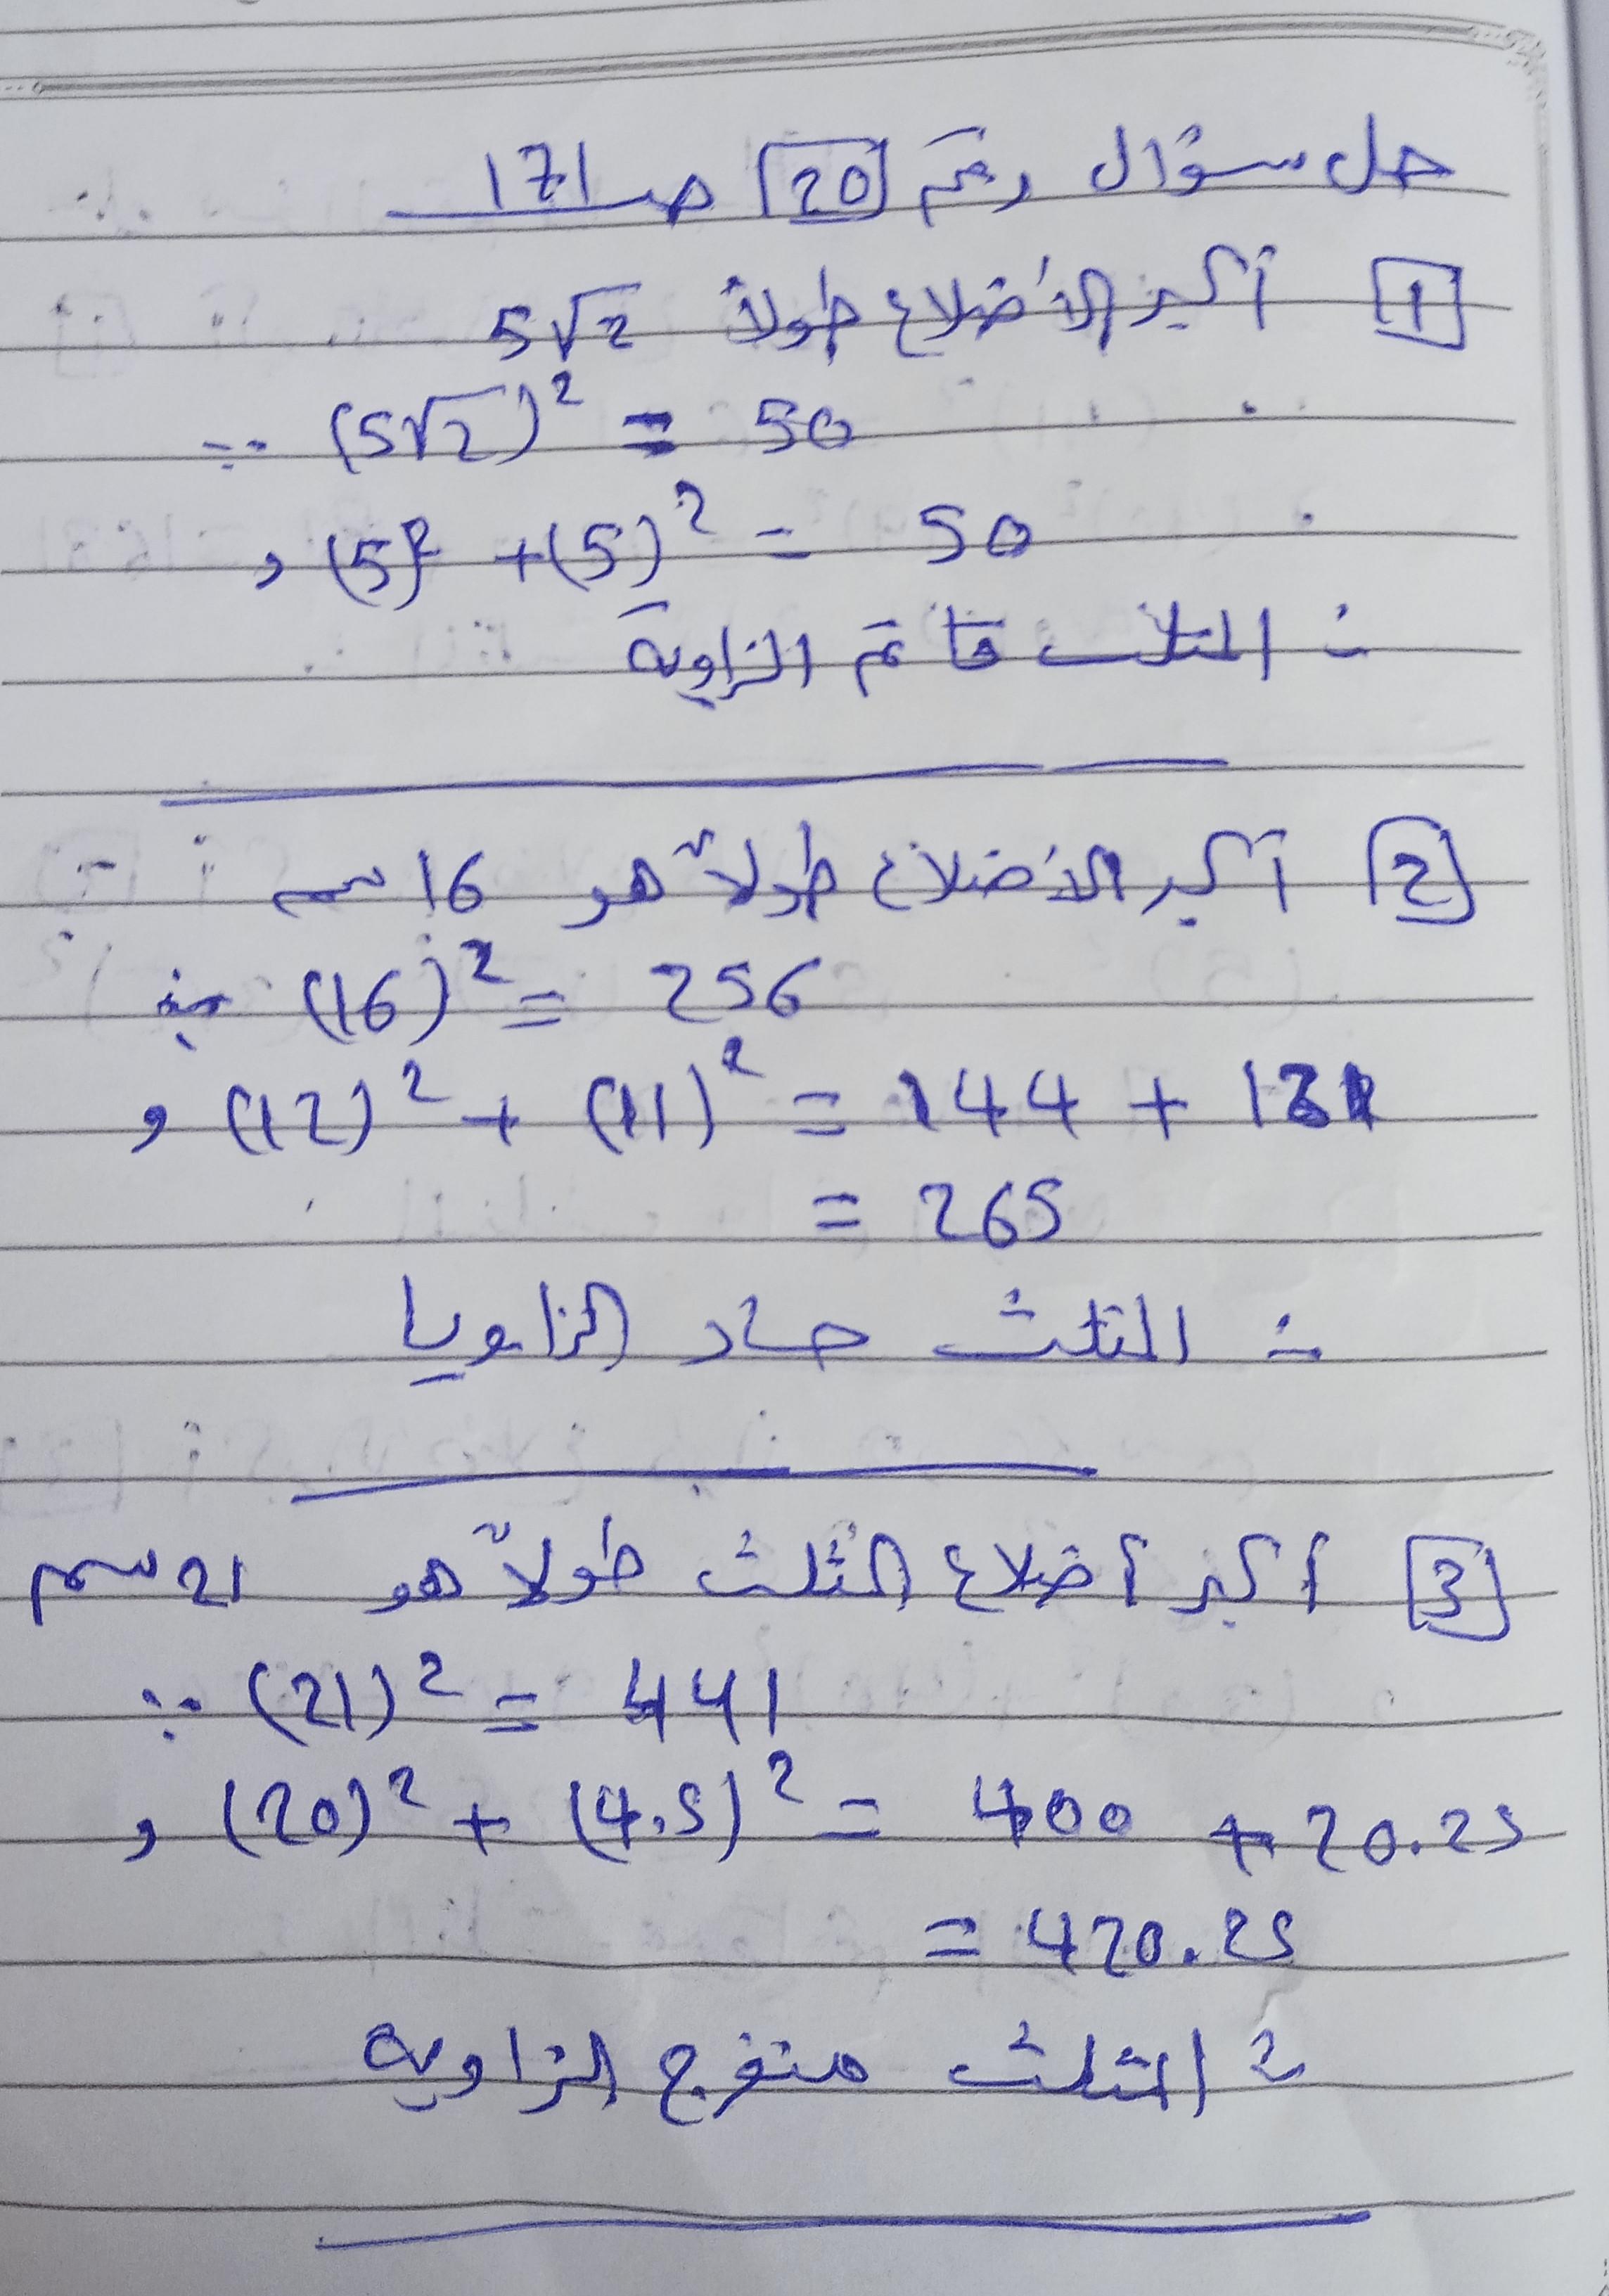 حل سؤال رقم 20 صـ 171
1 أكبر الأضلاع طولاً 5√2
∵ (5√2)² = 50
, (5)² + (5)² = 50
∴ المثلث قائم الزاوية
2 أكبر الأضلاع طولاً هو 16 سم
∵ (16)² = 256
, (12)² + (11)² = 144 + 121
= 265
∴ المثلث حاد الزاويا
3 أكبر أضلاع المثلث طولاً هو 21 سم
∵ (21)² = 441
, (20)² + (4.5)² = 400 + 20.25
= 420.25
∴ المثلث منفرج الزاوية